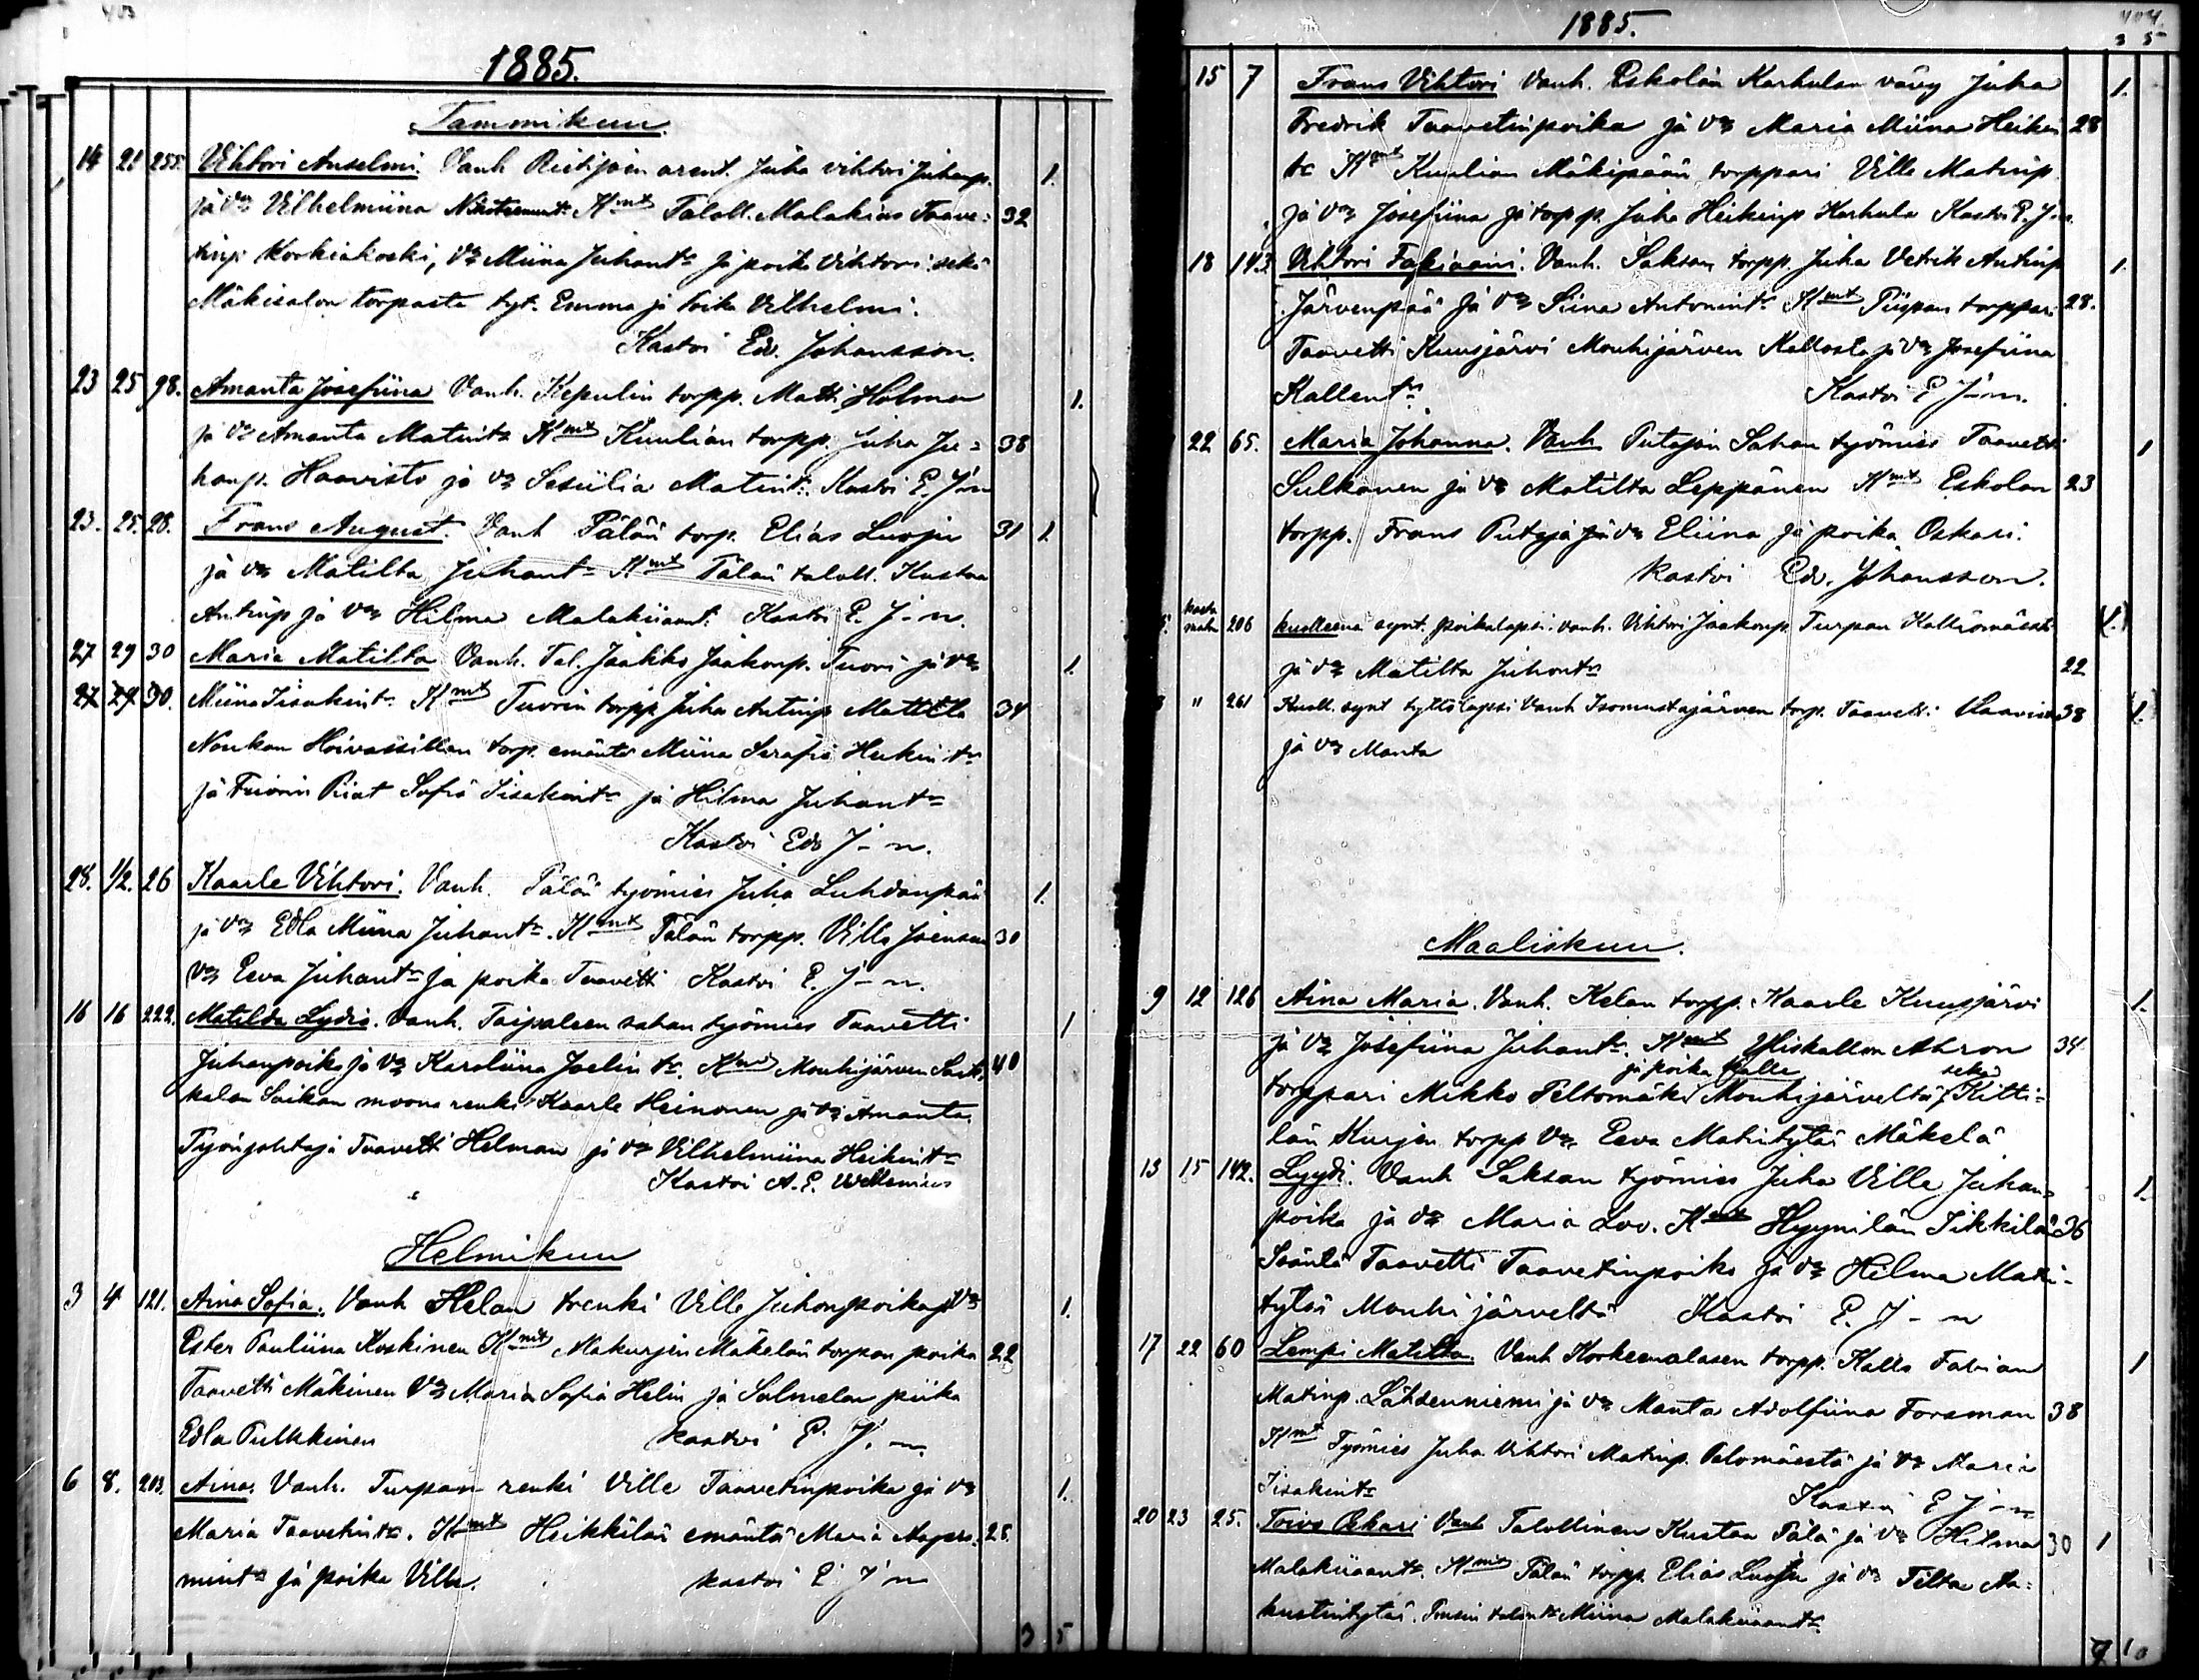 1885.
Tammikuu.
14 21 255. Vihtori Anselmi. Vanh Riitijoen arent. Juha vihtori Juhanp. 1.
ja v:o Vilhelmiina K:mt Taloll. Malakias Taave- 32
tinp. Korkiakoski, V:o Miina Juhant:r ja poika Vihtori sekä
Mäkisalon torpasta tyt. Emma ja Poika Vilhelmi.
Kastoi Edv. Johansson.
23 25 98. Amanta Josefiina Vanh. Kepulin torpp. Matti Holman 1.
ja v:o Amanta Matint:r K:mt Kuulian torpp. Juha Ju- 38
hanp. Haavisto ja v:o Sesiilia Matint:r Kastoi E. J-n
23. 25. 28. Frans August. Vanh Pälän torp. Elias Luoju 31 1.
ja v:o Matilta Juhant:r K:mt Pälän taloll. Kustaa
Antinp ja v:o Hilma Malakiiant. Kastoi E. J-n.
27 29 30 Maria Matilta Vanh. Tal. Jaakko Jaakonp. Tuori ja v:o 1.
27 29 30. Miina Iisakint:r K:mt Tuorin torpp Juha Antinp Mattila 34
Noukan Hoivassillan torp. emäntä Miina Serafia Heikint:r
ja Tuorin Piiat Sofia Iisakint:r ja Hilma Juhant:r
Kastoi Edv J-n.
28. 1/2. 26 Kaarle Vihtori. Vanh. Pälän työmies Juha Luhdanpää 1.
ja v:o Edla Miina Juhant:r. K:mt Pälän torpp. Ville Joensuu 30
v:o Eeva Juhant:r ja poika Taavetti Kastoi E. J-n.
16 16 222. Matilda Lydia. Vanh. Taipaleen sahan työmies Taavetti 1
Juhanpoika ja v:o Karoliina Joelin t:r. K:mt Mouhijärven Sasta- 40
kalan Saikan moona renki Kaarle Heinonen ja v:o Amanta.
Työnjohtaja Taavetti Helman ja v:o Vilhelmiina Heikint:r
Kastoi A. E.
Helmikuu
3 4 121. Aina Sofia. Vanh Helan trenki Ville Juhonpoika ja v:o 1.
Ester Pauliina Koskinen K:mt Makurjen Mäkelän torpan poika 22
Taavetti Mäkinen v:o Maria Sofia Helin ja Salmelan piika
Edla Pulkkinen kastoi E. J.-n.
6 8. 203. Aina. Vanh. Turpan renki Ville Taavetinpoika ja v:o 1.
Maria Taavetint:r. K:mt Heikkilän emäntä Maria 25.
mint:r ja poika Ville. kastoi E J-n
3 5
1885.
3 5
15 7 Frans Vihtori Vanh. Eskolan Karhulan vävy Juha 1.
Fredrik Taavetinpoika ja v:o Maria Miina Heikin 28
t:r K:mt Kuulian Mäkipään torppari Ville Matinp.
ja v:o Josefiina ja torpp. Juha Heikinp Karhula Kastoi E. J-n.
18 143 Vihtori Fabiaani. Vanh. Saksan torpp. Juha Vetrik Antinp 1.
Järvenpää ja v:o Siina Antonint:r K:mt Piispan torppari 28.
Taavetti Kuusjärvi Mouhijärven Kallosta ja v:o Josefiina
Kallent:r Kastoi E J-n.
22 65. Maria Johanna. Vanh Putajan Sahan työmies Taavetti 1
Sulkanen ja v:o Matilta Leppänen K:mt Eskolan 23
torpp. Frans Putaja ja v:o Eliina ja poika Oskari.
kastoi Edv. Johansson.
206 kuolleena synt. poikalapsi. vanh. Vihtori Jaakonp. Turpan Kalliomäestä (1.)
ja v:o Matilta Juhont:r 22
" 261 Kuoll. synt tyttölapsi Vanh Isomustajärven torp. Taavetti Haavisto 38 (1.)
ja v:o Manta
Maaliskuu.
9 12 126 Aina Maria. Vanh. Kelan torpp. Kaarle Kuusjärvi 1.
ja v:o Josefiina Juhant:r. K:mt Yliskallon Ahron 34
ja poika Kalle sekä
torppari Mikko Peltomäki Mouhijärveltä, Kitti-
län Kurjen torpp v:o Eeva Matintytär Mäkelä
13 15 142. Lyydi. Vanh Saksan työmies Juha Ville Juhan- 1.
poika ja v:o Maria Lov. K:mt Hyynilän Sikkilän 36
Isäntä Taavetti Taavetinpoika ja v:o Hilma Matin-
tytär Mouhijärveltä Kastoi E. J-n
17 22 60 Lempi Matilta. Vanh Korkeenalasen torpp. Kalle Fabian 1
Matinp. Lähdenniemi ja v:o Manta Adolfiina Forsman 38
K:mt Työmies Juha Vihtori Matinp. Palomäestä ja v:o Maria
Iisakint:r Kastoi E J-n
20 23 25. Toivo Oskari Vanh Talollinen Kustaa Pälä ja v:o Hilma 30 1
Malakiiant:r. K:mt Pälän torpp. Elias Luoju ja v:o Tilta Aa-
kustintytär. Tonsin talont:r Miina Malakiiant:r
9 10